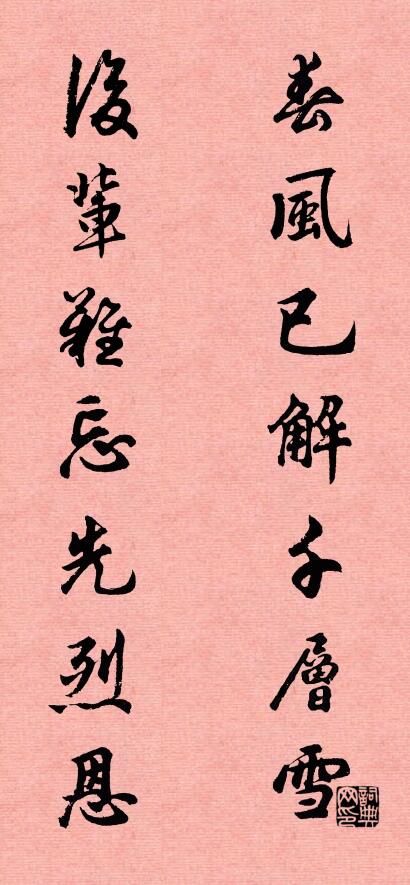 春風已解千層雪
後輩難忘先烈恩
詞典网印